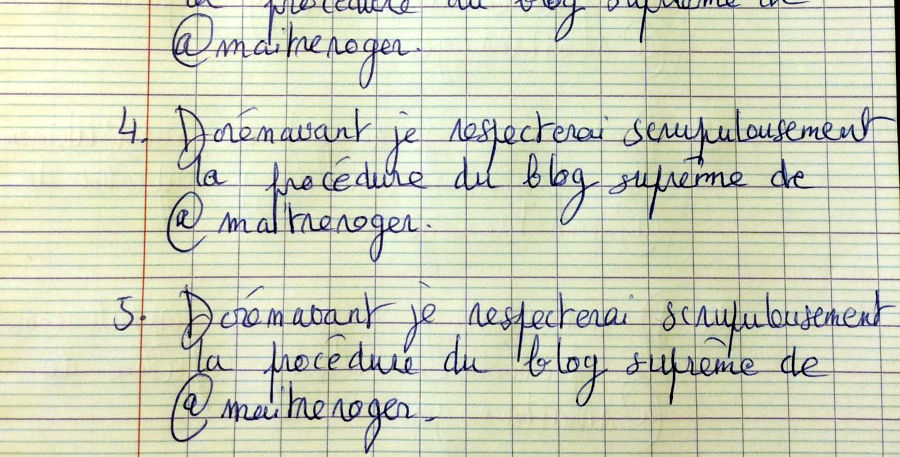 la procédure du blog suprême de
@maitreroger.
4. Dorénavant je respecterai scrupulousement
la procédure du blog suprême de
@maitreroger.
5. Dorénavant je respecterai scrupulousement
la procédure du blog suprême de
@maitreroger.